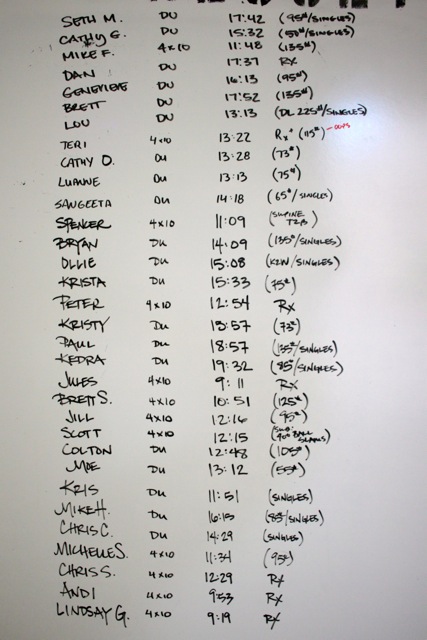 SETH M. DU 17:42 (95#/SINGLES)
CATHY G. DU 15:32 (50#/SINGLES)
MIKE F. 4x10 11:48 (135#)
DAN DU 17:37 RX
GENEVIEVE DU 16:13 (95#)
BRETT DU 17:52 (135#)
LOU DU 13:13 (DL 225#/SINGLES)
TERI 4x10 13:22 Rx+ (115#) -OOPS
CATHY O. DU 13:28 (73#)
LUANNE DU 13:13 (75#)
SANGEETA DU 14:18 (65#/SINGLES)
SPENCER 4x10 11:09 (SUPINE T2B)
BRYAN DU 14:09 (135#/SINGLES)
OLLIE DU 15:08 (K2W/SINGLES)
KRISTA DU 15:33 (75#)
PETER 4x10 12:54 Rx
KRISTY DU 13:57 (73#)
PAUL DU 18:57 (135#/SINGLES)
KEDRA DU 19:32 (85#/SINGLES)
JULES 4x10 9:11 Rx
BRETT S. 4x10 10:51 (125#)
JILL 4x10 12:16 (95#)
SCOTT 4x10 12:15 BALL SLAMS)
COLTON DU 12:48 (105#)
MOE DU 13:12 (55#)
KRIS DU 11:51 (SINGLES)
MIKE H. DU 16:15 (85#/SINGLES)
CHRIS C. DU 14:29 (SINGLES)
MICHELLE S. 4x10 11:34 (93#)
CHRIS S. 4x10 12:29 Rx
ANDI 4x10 9:53 Rx
LINDSAY G. 4x10 9:19 Rx